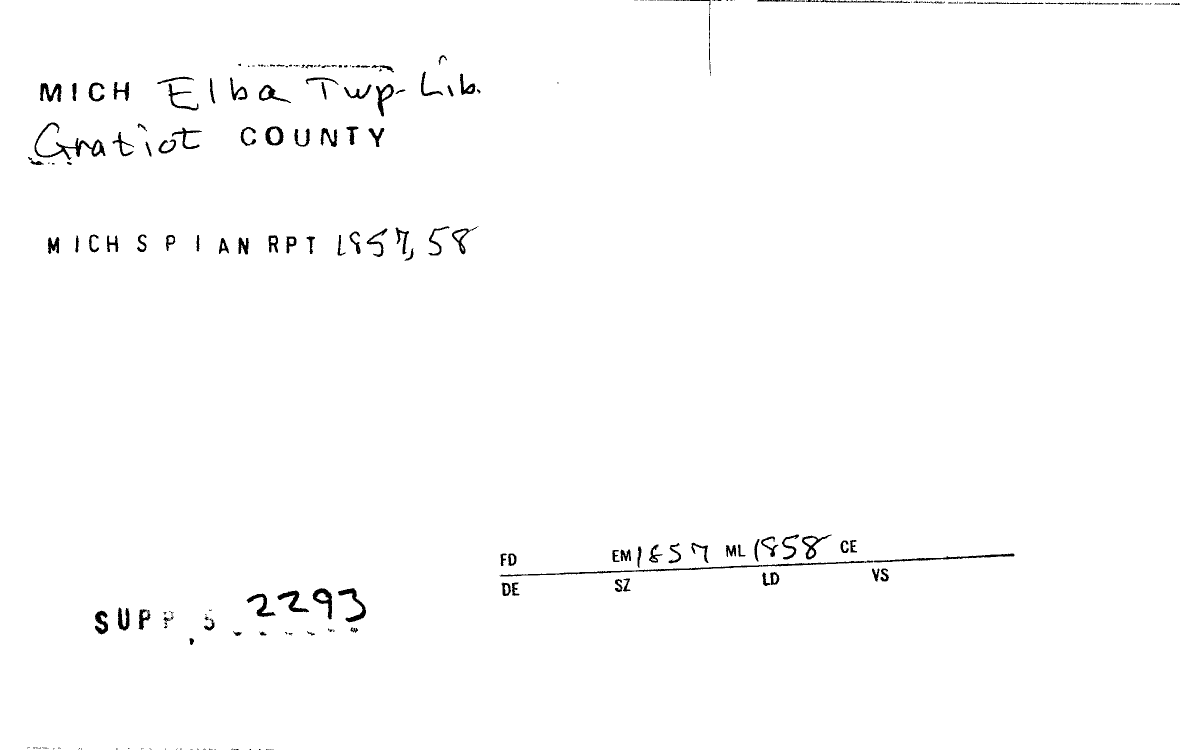 MICH Elba Twp. Lib.
Gratiot COUNTY
MICH S P I AN RPT 1857, 58
FD EM 1857 ML 1858 CE
DE SZ LD VS
SUPP. 5 2293